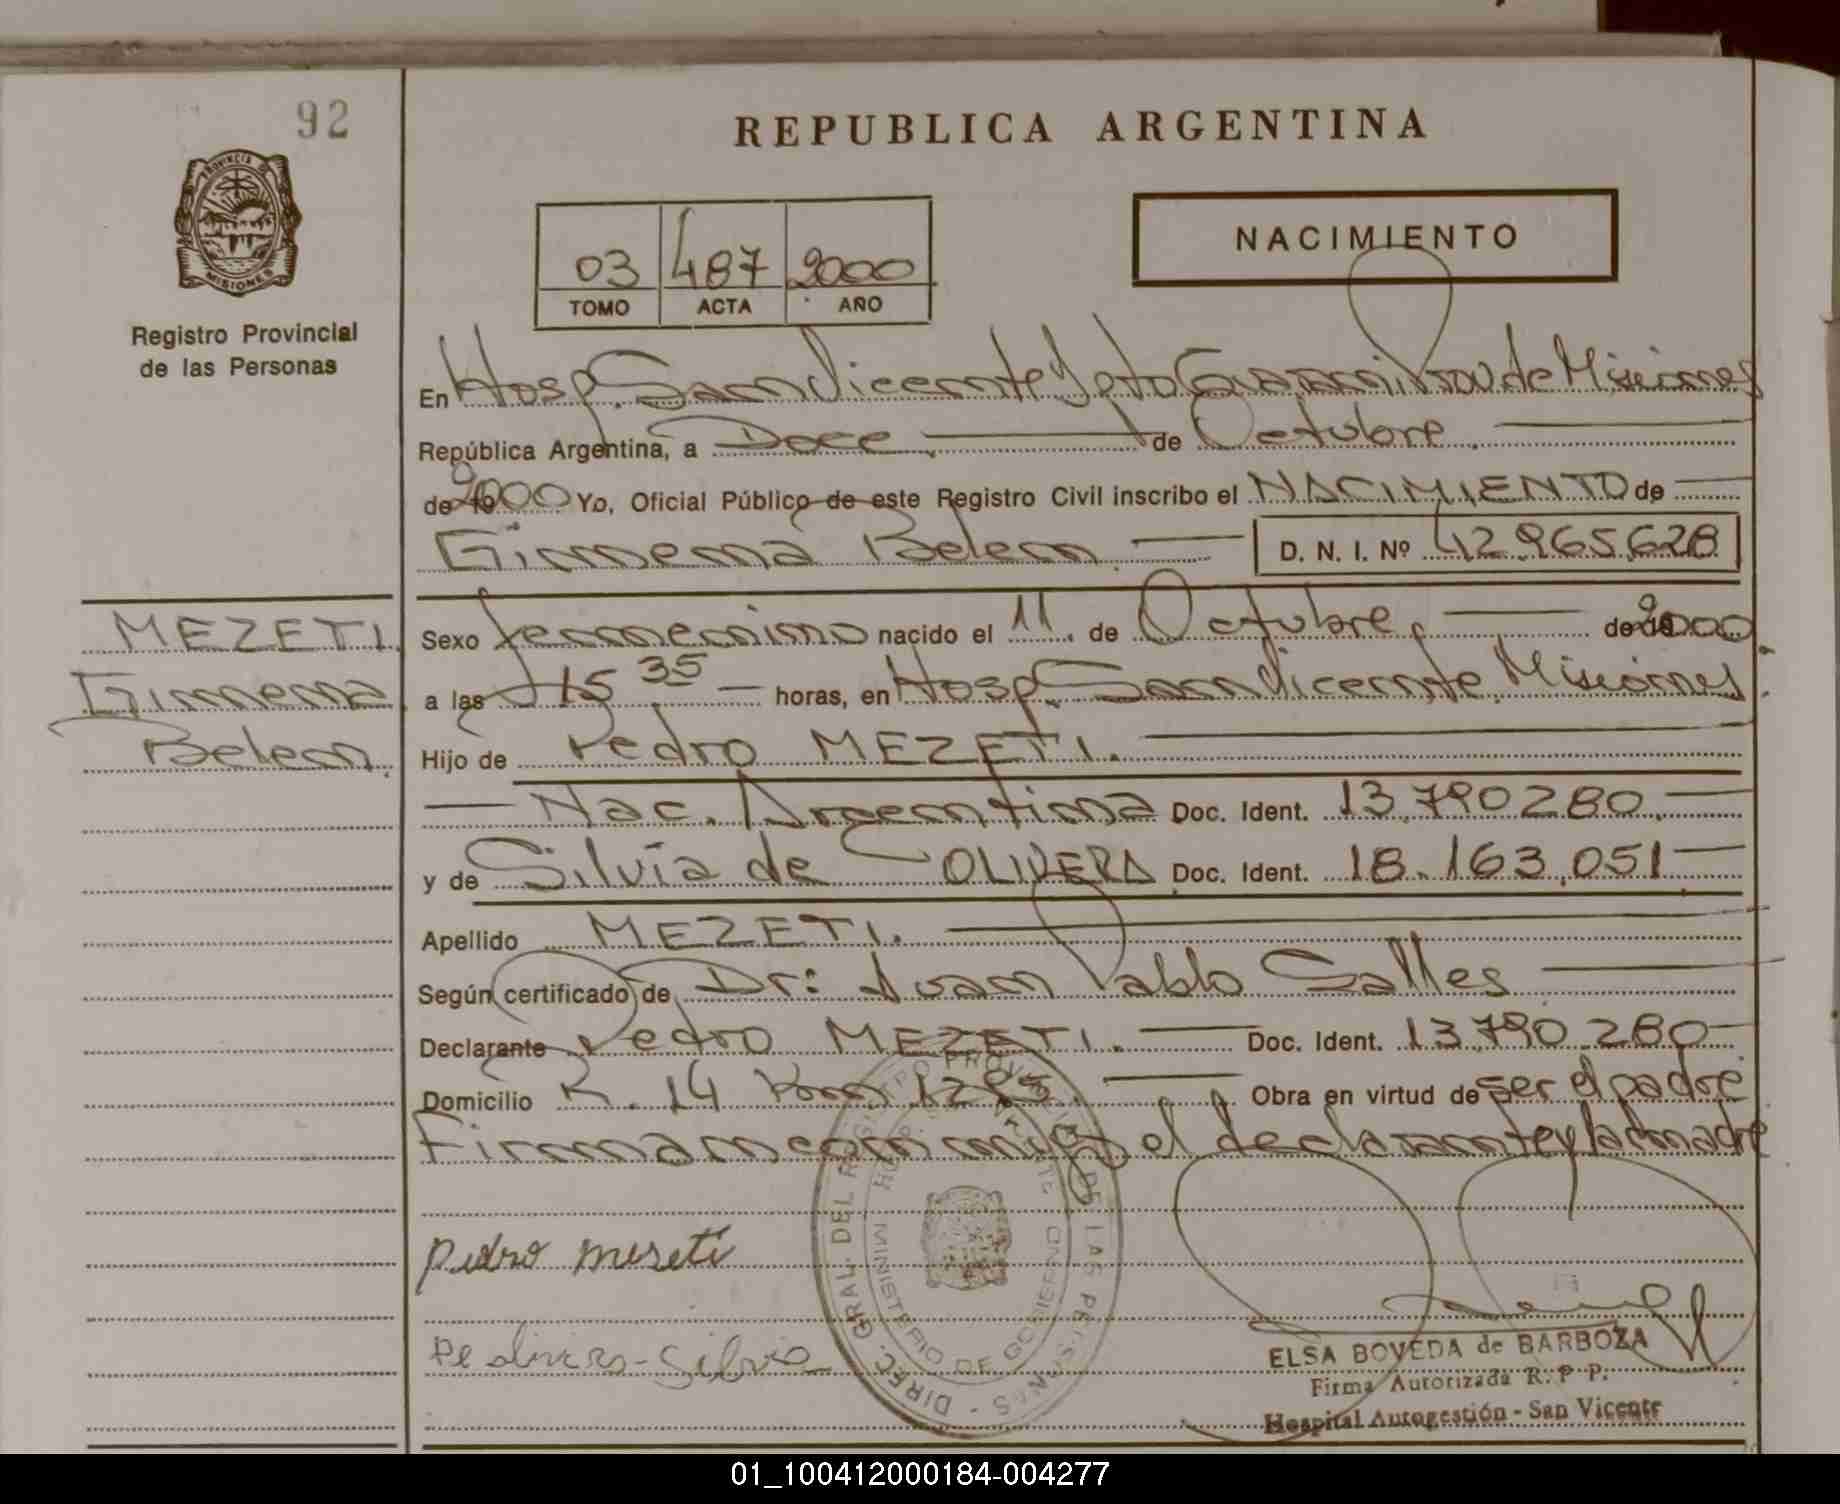 92
PROVINCIA DE
MISIONES
Registro Provincial
de las Personas
REPUBLICA ARGENTINA
03 487 2000
TOMO ACTA AÑO
NACIMIENTO
En Hosp. San Vicente Dpto Guarani Prov de Misiones
República Argentina, a Doce de Octubre
de 2000 Yo, Oficial Público de este Registro Civil inscribo el NACIMIENTO de
Gimena Belen D. N. I. Nº 42.965.628
MEZETI.
Gimena
Belen.
Sexo femenino nacido el 11 de Octubre de 2000
a las 15 35 horas, en Hosp. San Vicente Misiones
Hijo de Pedro MEZETI.
Nac. Argentina Doc. Ident. 13.790.280
y de Silvia de OLIVERA Doc. Ident. 18.163.051
Apellido MEZETI.
Según certificado de Dr: Juan Pablo Salles
Declarante Pedro MEZETI. Doc. Ident. 13.790.280
Domicilio R. 14 Km 1285 Obra en virtud de ser el padre
Firman conmigo el declarante y la madre
Pedro meseti
De olivera-Silvia
DIREC. GRAL. DEL REGISTRO PROVINCIAL DE LAS PERSONAS
MINISTERIO DE GOBIERNO
ELSA BOVEDA de BARBOZA
Firma Autorizada R. P. P.
Hospital Autogestión - San Vicente
01_100412000184-004277